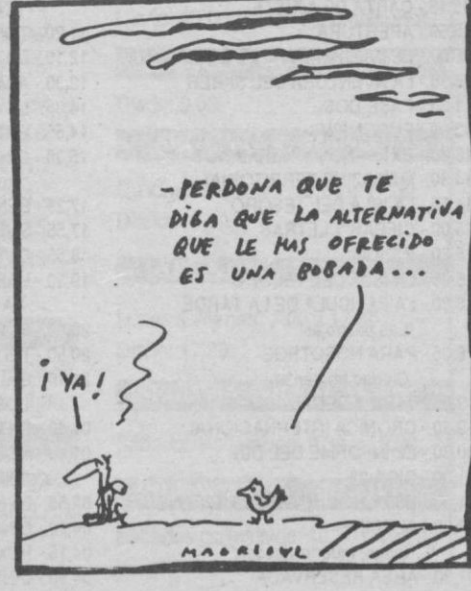 -PERDONA QUE TE
DIGA QUE LA ALTERNATIVA
QUE LE HAS OFRECIDO
ES UNA BOBADA...
¡YA!
MADRIGAL